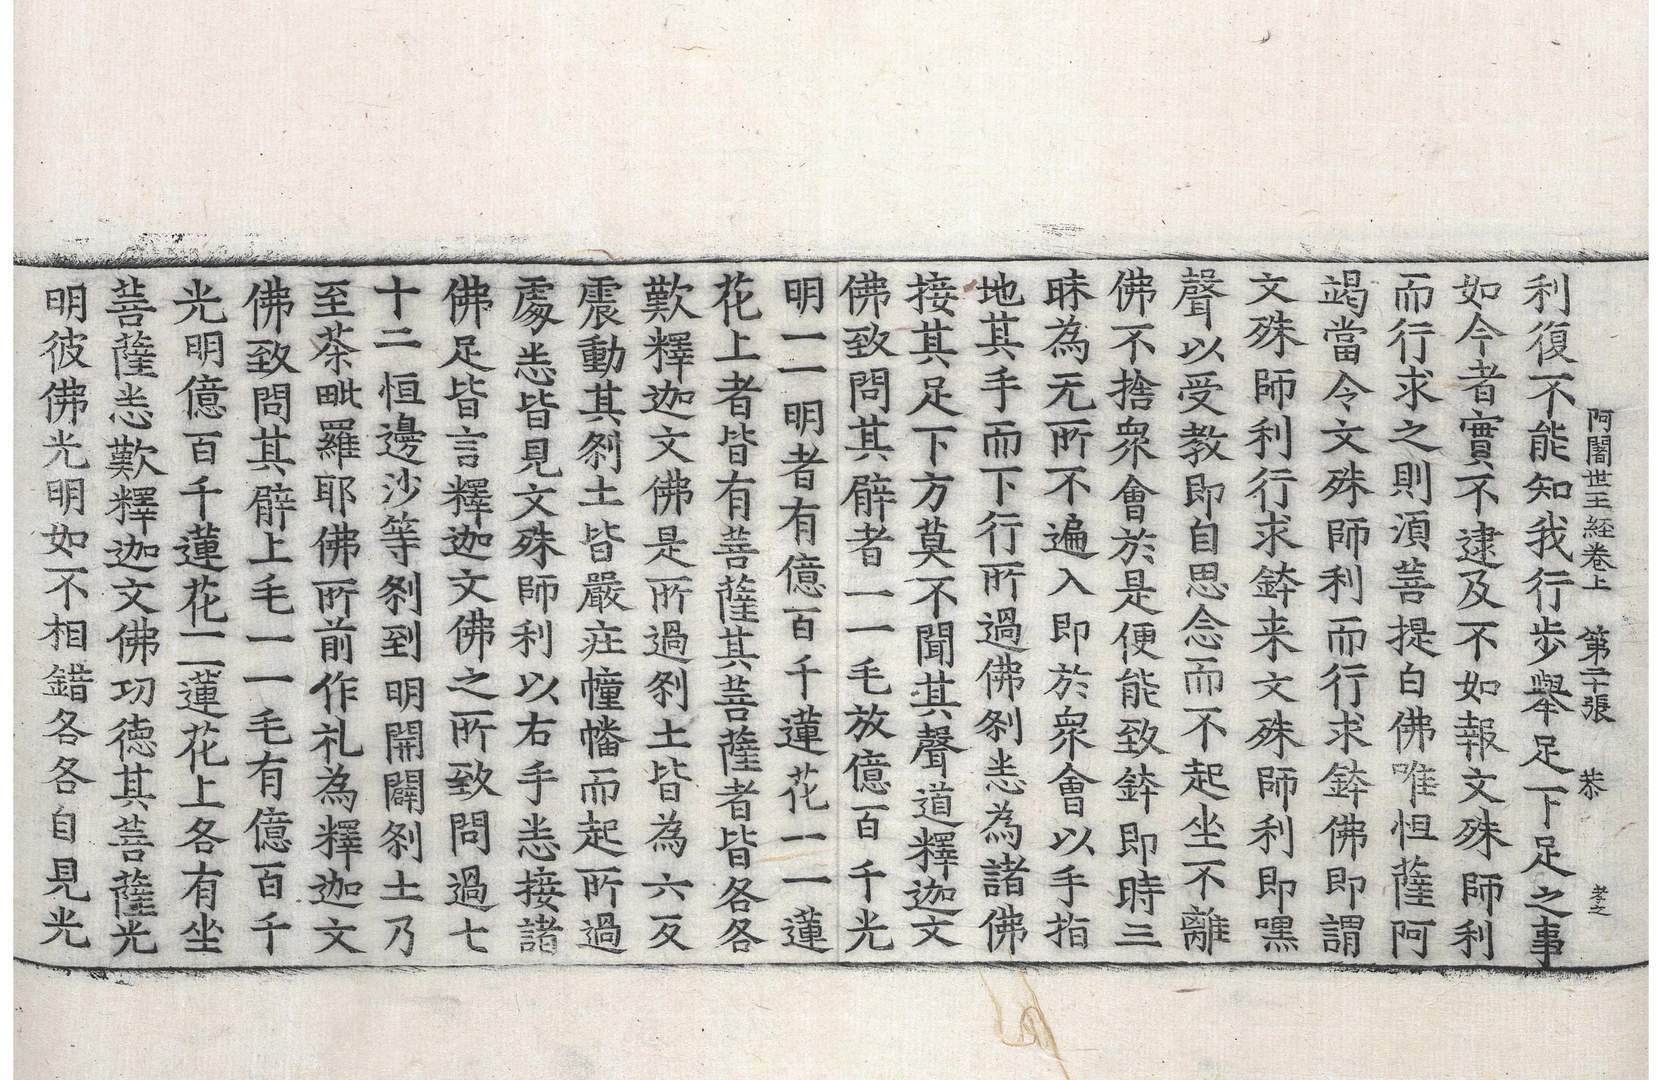 阿闍世王經卷上　第二十張　恭　孝之
利復不能知我行步舉足下足之事
如今者實不逮及不如報文殊師利
而行求之則湏菩提白佛唯怛薩阿
竭當令文殊師利而行求鉢佛即謂
文殊師利行求鉢来文殊師利即嘿
聲以受教即自思念而不起坐不離
佛不捨衆會於是便能致鉢即時三
昧為无所不遍入即於衆會以手指
地其手而下行所過佛刹悉為諸佛
接其足下方莫不聞其聲道釋迦文
佛致問其臂者一一毛放億百千光
明一一明者有億百千蓮花一一蓮
花上者皆有菩薩其菩薩者皆各各
歎釋迦文佛是所過刹土皆為六反
震動其刹土皆嚴庄幢幡而起所過
處悉皆見文殊師利以右手悉接諸
佛足皆言釋迦文佛之所致問過七
十二恒邊沙等刹到明開闢刹土乃
至荼毗羅耶佛所前作礼為釋迦文
佛致問其臂上毛一一毛有億百千
光明億百千蓮花一一蓮花上各有坐
菩薩悉歎釋迦文佛功徳其菩薩光
明彼佛光明如不相錯各各自見光